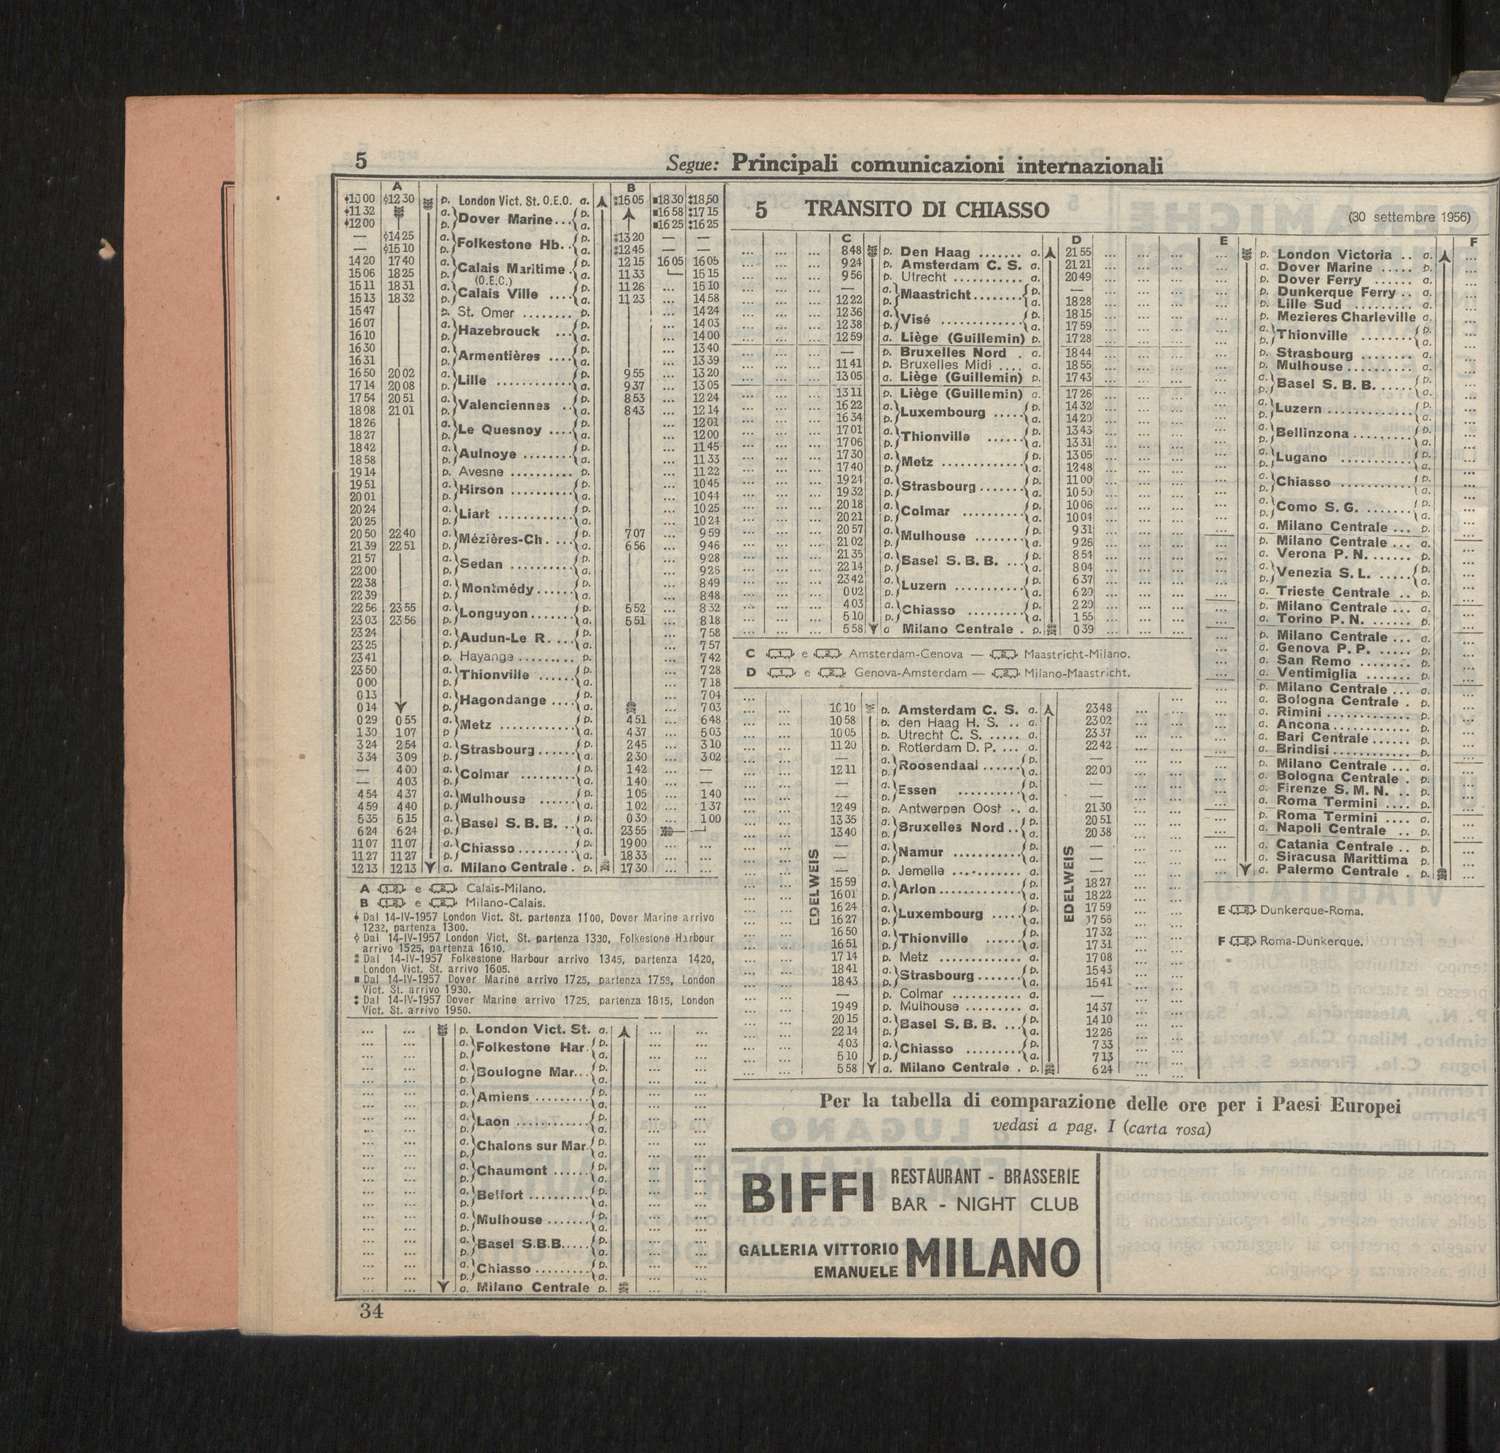 5
Segue: Principali comunicazioni internazionali
A
B
1300 1230 p. London Vict. St. O.E.O. a. 1605 1830 1850
1132 a. Dover Marine... p. 1658 1715
1200 p. a. 1625 1625
— 1425 a. Folkestone Hb. p. 1320 — —
— 1510 p. a. 1245 — —
1420 1740 a. Calais Maritime p. 1215 1605 1605
1506 1825 p. (O.E.C.) a. 1133 1515
1511 1831 a. Calais Ville .... p. 1126 ... 1510
1513 1832 p. a. 1123 ... 1458
1547 p. St. Omer ........ p. ... 1424
1607 a. Hazebrouck ... p. ... 1403
1610 p. a. ... 1400
1630 a. Armentières .... p. ... 1340
1631 p. a. ... 1339
1650 2002 a. Lille ........... p. 955 ... 1320
1714 2008 p. a. 937 ... 1305
1754 2051 a. Valenciennes .. p. 853 ... 1224
1808 2101 p. a. 843 ... 1214
1826 a. Le Quesnoy .... p. ... 1201
1827 p. a. ... 1200
1842 a. Aulnoye ....... p. ... 1145
1858 p. a. ... 1133
1914 p. Avesne .......... p. ... 1122
1951 a. Hirson .......... p. ... 1045
2001 p. a. ... 1044
2024 a. Liart ........... p. ... 1025
2025 p. a. ... 1024
2050 2240 a. Mézières-Ch. ... p. 707 ... 959
2139 2251 p. a. 656 ... 946
2157 a. Sedan .......... p. ... 928
2200 p. a. ... 926
2238 a. Montmédy...... p. ... 849
2239 p. a. ... 848
2256 2355 a. Longuyon....... p. 552 ... 832
2303 2356 p. a. 551 ... 818
2324 a. Audun-Le R. ... p. ... 758
2325 p. a. ... 757
2341 p. Hayange ......... p. ... 742
2350 a. Thionville ..... p. ... 728
000 p. a. ... 718
013 a. Hagondange .... p. ... 704
014 p. a. ... 703
029 055 a. Metz ........... p. 451 ... 648
130 107 p. a. 437 ... 503
324 254 a. Strasbourg...... p. 245 ... 310
334 309 p. a. 230 ... 302
— 400 a. Colmar ......... p. 142 ... —
— 403 p. a. 140 ... —
454 437 a. Mulhouse ...... p. 105 ... 140
459 440 p. a. 102 ... 137
535 515 a. Basel S. B. B. .. p. 030 ... 100
624 624 p. a. 2355
1107 1107 a. Chiasso......... p. 1900 ... ...
1127 1127 p. a. 1833 ... ...
1213 1213 a. Milano Centrale . p. 1730 ... ...
A e Calais-Milano.
B e Milano-Calais.
Dal 14-IV-1957 London Vict. St. partenza 1100, Dover Marine arrivo
1232, partenza 1300.
Dal 14-IV-1957 London Vict. St. partenza 1330, Folkestone Harbour
arrivo 1525, partenza 1610.
Dal 14-IV-1957 Folkestone Harbour arrivo 1345, partenza 1420,
London Vict. St. arrivo 1605.
Dal 14-IV-1957 Dover Marine arrivo 1725, partenza 1759, London
Vict. St. arrivo 1930.
Dal 14-IV-1957 Dover Marine arrivo 1725, partenza 1815, London
Vict. St. arrivo 1950.
p. London Vict. St. a.
a. Folkestone Har. p.
p. a.
a. Boulogne Mar... p.
p. a.
a. Amiens ........ p.
p. a.
a. Laon ............ p.
p. a.
a. Chalons sur Mar. p.
p. a.
a. Chaumont ...... p.
p. a.
a. Belfort .......... p.
p. a.
a. Mulhouse ....... p.
p. a.
a. Basel S.B.B..... p.
p. a.
a. Chiasso......... p.
p. a.
a. Milano Centrale p.
34
5 TRANSITO DI CHIASSO
(30 settembre 1956)
C
D
848 p. Den Haag ....... a. 2155
924 p. Amsterdam C. S. a. 2121
956 p. Utrecht ........... a. 2049
— a. Maastricht........ p. —
1222 p. a. 1828
1236 a. Visé ............ p. 1815
1238 p. a. 1759
1259 a. Liège (Guillemin) p. 1728
— p. Bruxelles Nord . a. 1844
1141 p. Bruxelles Midi .... a. 1855
1305 a. Liège (Guillemin) p. 1743
1311 p. Liège (Guillemin) a. 1726
1622 a. Luxembourg ..... p. 1432
1634 p. a. 1420
1701 a. Thionville ...... p. 1343
1706 p. a. 1331
1730 a. Metz ............ p. 1305
1740 p. a. 1248
1924 a. Strasbourg....... p. 1100
1932 p. a. 1050
2018 a. Colmar .......... p. 1006
2021 p. a. 1004
2057 a. Mulhouse ........ p. 931
2102 p. a. 926
2135 a. Basel S. B. B. ... p. 854
2214 p. a. 804
2342 a. Luzern .......... p. 637
002 p. a. 620
403 a. Chiasso ......... p. 229
510 p. a. 155
558 a Milano Centrale . p. 039
C e Amsterdam-Genova — Maastricht-Milano.
D e Genova-Amsterdam — Milano-Maastricht.
EDELWEIS
EDELWEIS
1010 p. Amsterdam C. S. a. 2348
1058 p. den Haag H. S. .. a. 2302
1005 p. Utrecht C. S. ..... a. 2337
1120 p. Rotterdam D. P. ... a. 2242
— a. Roosendaal ...... p. —
1211 p. a. 2200
— a. Essen .......... p. —
— p. a. —
1249 p. Antwerpen Oost .. a. 2130
1335 a. Bruxelles Nord.. p. 2051
1340 p. a. 2038
— a. Namur .......... p. —
— p. a. —
— p. Jemelle .......... a. —
1559 a. Arlon ........... p. 1827
— p. a. 1822
1624 a. Luxembourg ..... p. 1759
1627 p. a. 1756
1650 a. Thionville ...... p. 1732
1651 p. a. 1731
1714 p. Metz ............ a. 1708
1841 a. Strasbourg....... p. 1543
1843 p. a. 1541
— p. Colmar .......... a. —
1949 p. Mulhouse ......... a. 1437
2015 a. Basel S. B. B. ... p. 1410
2214 p. a. 1226
403 a. Chiasso ......... p. 733
510 p. a. 713
558 a. Milano Centrale . p. 624
E
F
p. London Victoria .. a.
a. Dover Marine ..... p.
p. Dover Ferry ...... a.
p. Dunkerque Ferry .. a.
p. Lille Sud ......... a.
p. Mezieres Charleville a.
a. Thionville ........ p.
p. a.
p. Strasbourg ........ a.
p. Mulhouse.......... a.
a. Basel S. B. B. ..... p.
p. a.
a. Luzern ........... p.
p. a.
a. Bellinzona ......... p.
p. a.
a. Lugano ........... p.
p. a.
a. Chiasso ........... p.
p. a.
a. Como S. G. ....... p.
p. a.
a. Milano Centrale ... p.
p. Milano Centrale ... a.
a. Verona P. N. ...... p.
a. Venezia S. L. ..... p.
p. a.
a. Trieste Centrale .. p.
p. Milano Centrale ... a.
a. Torino P. N. ...... p.
p. Milano Centrale ... a.
a. Genova P. P. ..... p.
a. San Remo ........ p.
a. Ventimiglia ....... p.
p. Milano Centrale ... a.
a. Bologna Centrale . p.
a. Rimini ............ p.
a. Ancona........... p.
a. Bari Centrale ...... p.
a. Brindisi ........... p.
p. Milano Centrale ... a.
a. Bologna Centrale . p.
a. Firenze S. M. N. .. p.
a. Roma Termini .... p.
p. Roma Termini .... a.
a. Napoli Centrale .. p.
a. Catania Centrale .. p.
a. Siracusa Marittima p.
a. Palermo Centrale . p.
E Dunkerque-Roma.
F Roma-Dunkerque.
Per la tabella di comparazione delle ore per i Paesi Europei
vedasi a pag. I (carta rosa)
BIFFI RESTAURANT - BRASSERIE
BAR - NIGHT CLUB
GALLERIA VITTORIO
EMANUELE MILANO